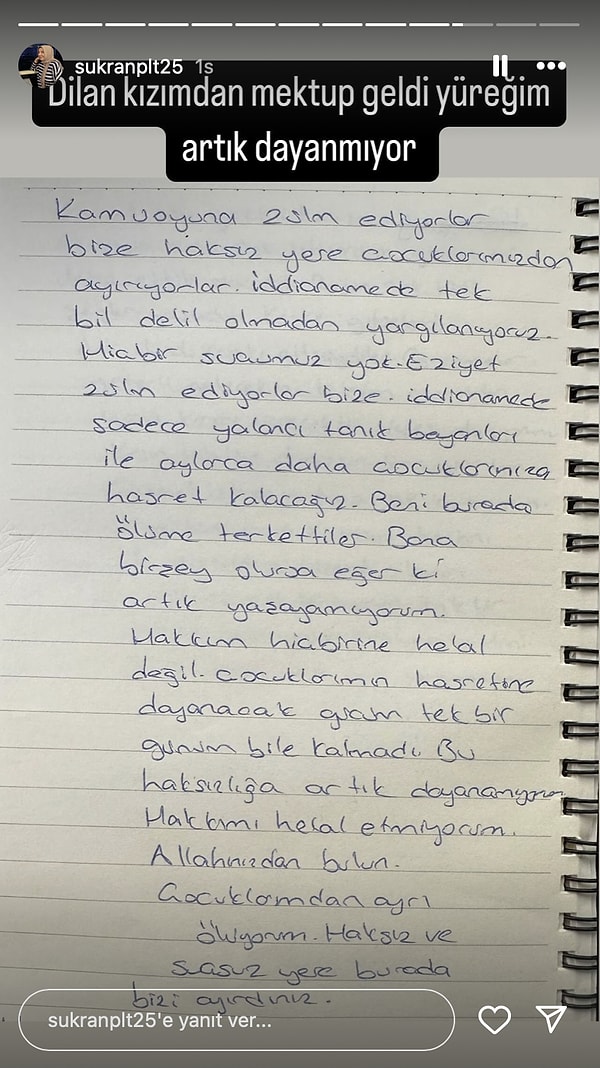 sukranplt25 1s
Dilan kızımdan mektup geldi yüreğim
artık dayanmıyor
Kamuoyuna zulm ediyorlar
bize haksız yere çocuklarımızdan
ayırıyorlar. iddianamede tek
bil delil olmadan yargılanıyoruz.
Hiçbir suçumuz yok. Eziyet
zulm ediyorlar bize. iddianamede
sadece yalancı tanık beyanları
ile aylarca daha çocuklarımıza
hasret kalacağız. Beni burada
ölüme terkettiler. Bana
birşey olursa eğer ki
artık yaşayamıyorum.
Hakkım hiçbirine helal
değil. çocuklarımın hasretine
dayanacak gram tek bir
günüm bile kalmadı. Bu
haksızlığa artık dayanamıyorum
Hakkımı helal etmiyorum.
Allahınızdan bulun.
Çocuklarımdan ayrı
ölüyorum. Haksız ve
suçsuz yere burada
bizi ayırdınız.
sukranplt25'e yanıt ver...